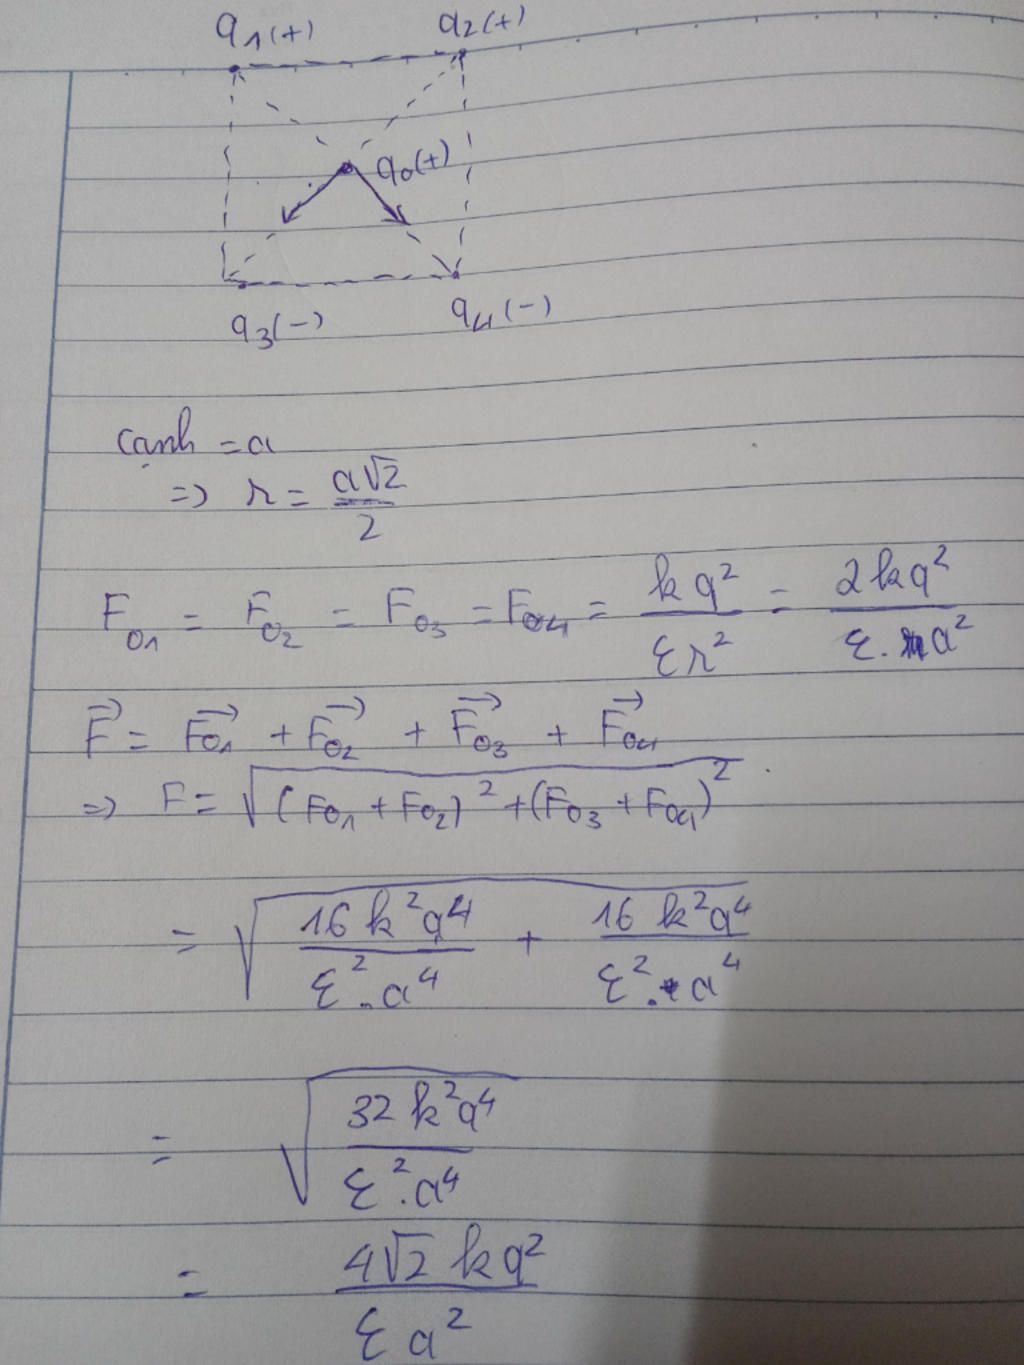 q₁(+) q₂(+)
q₀(+)
q₃(-) q₄(-)
cạnh = a
=> r = a√2/2
F₀₁ = F₀₂ = F₀₃ = F₀₄ = kq²/εr² = 2kq²/ε.a²
F⃗ = F₀₁⃗ + F₀₂⃗ + F₀₃⃗ + F₀₄⃗
=> F = √((F₀₁ + F₀₂)² + (F₀₃ + F₀₄)²)
= √(16k²q⁴/ε².a⁴ + 16k²q⁴/ε².a⁴)
= √(32k²q⁴/ε².a⁴)
= 4√2kq²/εa²